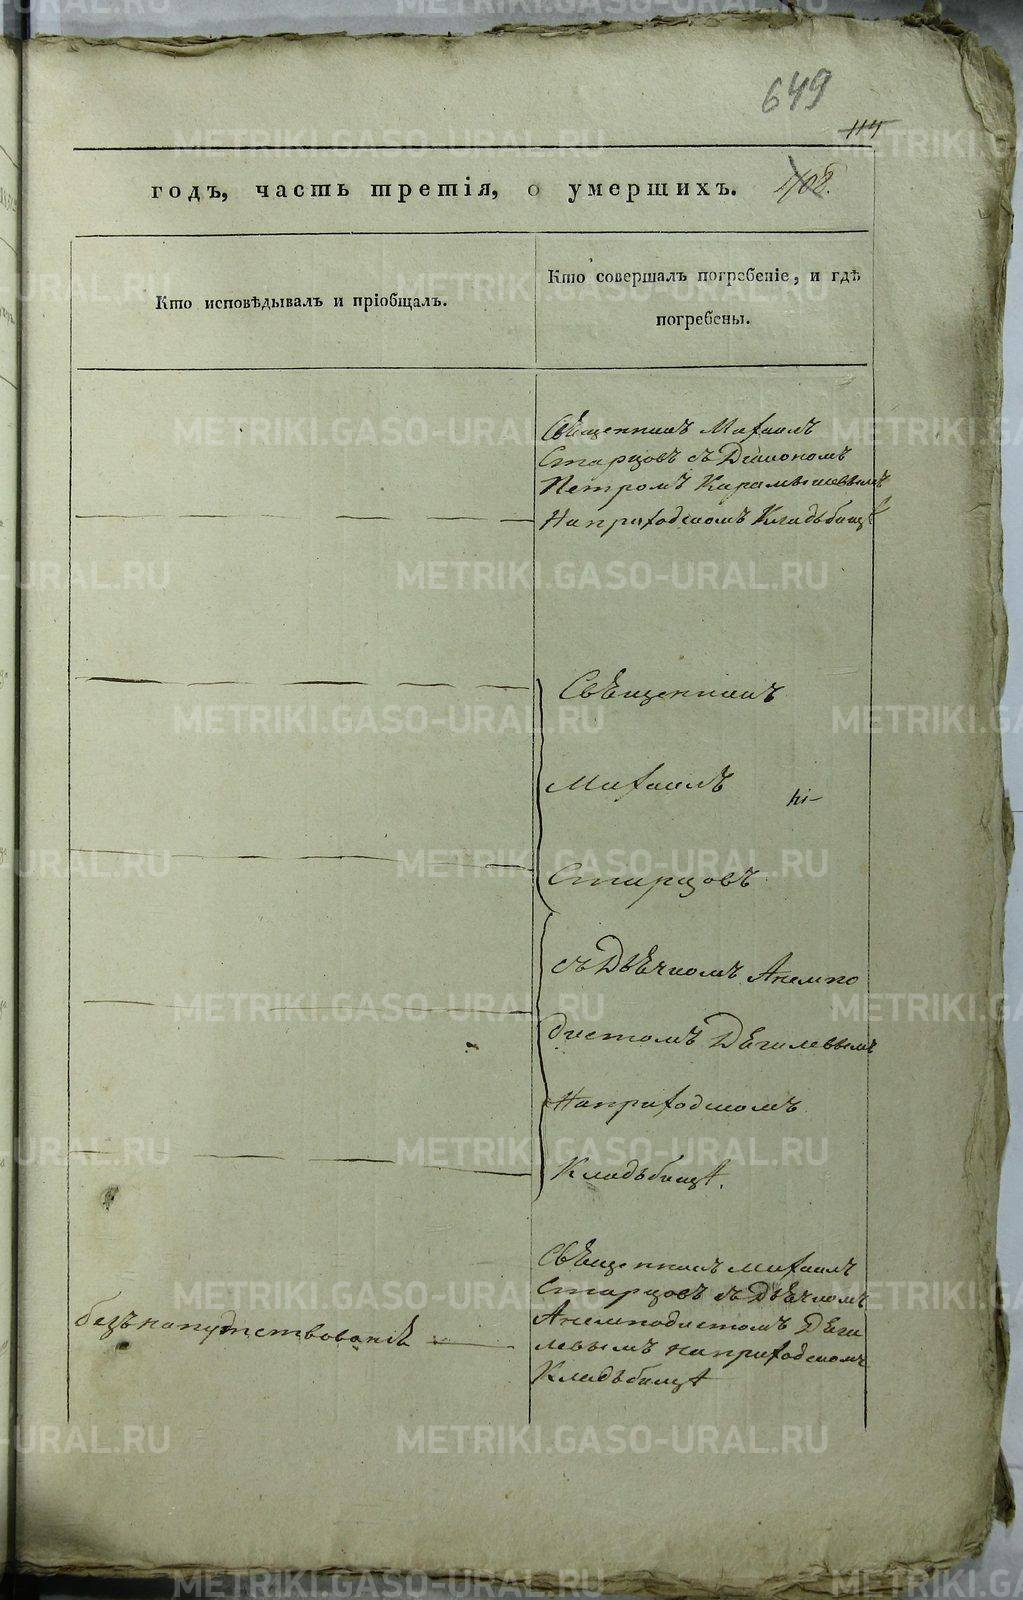 649
114
годъ, часть третія, о умершихъ. 408.
Кто исповѣдывалъ и пріобщалъ.
Кто совершалъ погребеніе, и гдѣ
погребены.
Свѣщенникъ Михаилъ
Старцовъ съ Дьякономъ
Петромъ Карамышевымъ
На приходскомъ Кладьбищѣ
Свѣщенникъ
Михаилъ
Старцовъ
съ Дьѣчкомъ Анемпо
дистомъ Дѣгилевымъ
На приходскомъ
Кладьбищѣ.
Свѣщенникъ Михаилъ
Старцовъ съ Дьѣчкомъ
Анемподистомъ Дѣги
левымъ на приходскомъ
Кладьбищѣ
безъ напутствованіѣ
METRIKI.GASO-URAL.RU